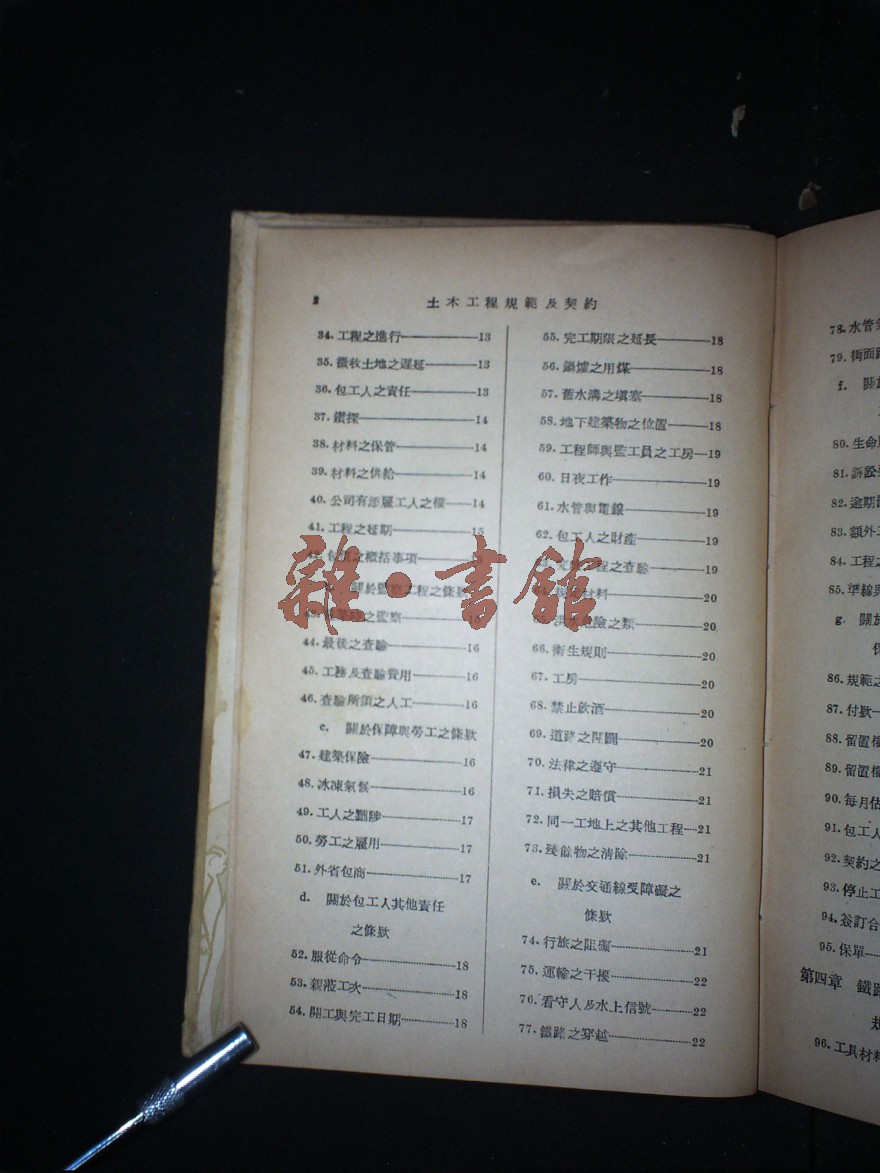 2
土木工程規範及契約
34.工程之進行——13
35.徵收土地之遲延——13
36.包工人之責任——13
37.鑽探——14
38.材料之保管——14
39.材料之供給——14
40.公司有添雇工人之權——14
41.工程之延期——15
之概括事項
關於監察工程之條款
之監察
44.最後之查驗——16
45.工務及查驗費用——16
46.查驗所須之人工——16
c. 關於保障與勞工之條欵
47.建築保險——16
48.冰凍氣候——16
49.工人之黜陟——17
50.勞工之雇用——17
51.外省包商——17
d. 關於包工人其他責任
之條欵
52.服從命令——18
53.親蒞工次——18
54.開工與完工日期——18
55.完工期限之延長——18
56.鍋爐之用煤——18
57.舊水溝之填塞——18
58.地下建築物之位置——18
59.工程師與監工員之工房—19
60.日夜工作——19
61.水管與電線——19
62.包工人之財產——19
工程之查驗——19
材料——20
險之類——20
66.衛生規則——20
67.工房——20
68.禁止飲酒——20
69.道路之開闢——20
70.法律之遵守——21
71.損失之賠償——21
72.同一工地上之其他工程—21
73.殘餘物之清除——21
e. 關於交通線受障礙之
條欵
74.行旅之阻礙——21
75.運輸之干擾——22
76.看守人及水上信號——22
77.鐵路之穿越——22
雜·書館
78.水管
79.街面
f. 關於
80.生命
81.訴訟
82.逾期
83.額外
84.工程之
85.準線與
g. 關於
保
86.規範之
87.付欵—
88.留置
89.留置
90.每月估
91.包工人
92.契約之
93.停止工
94.簽訂合
95.保單—
第四章 鐵路
96.工具材料